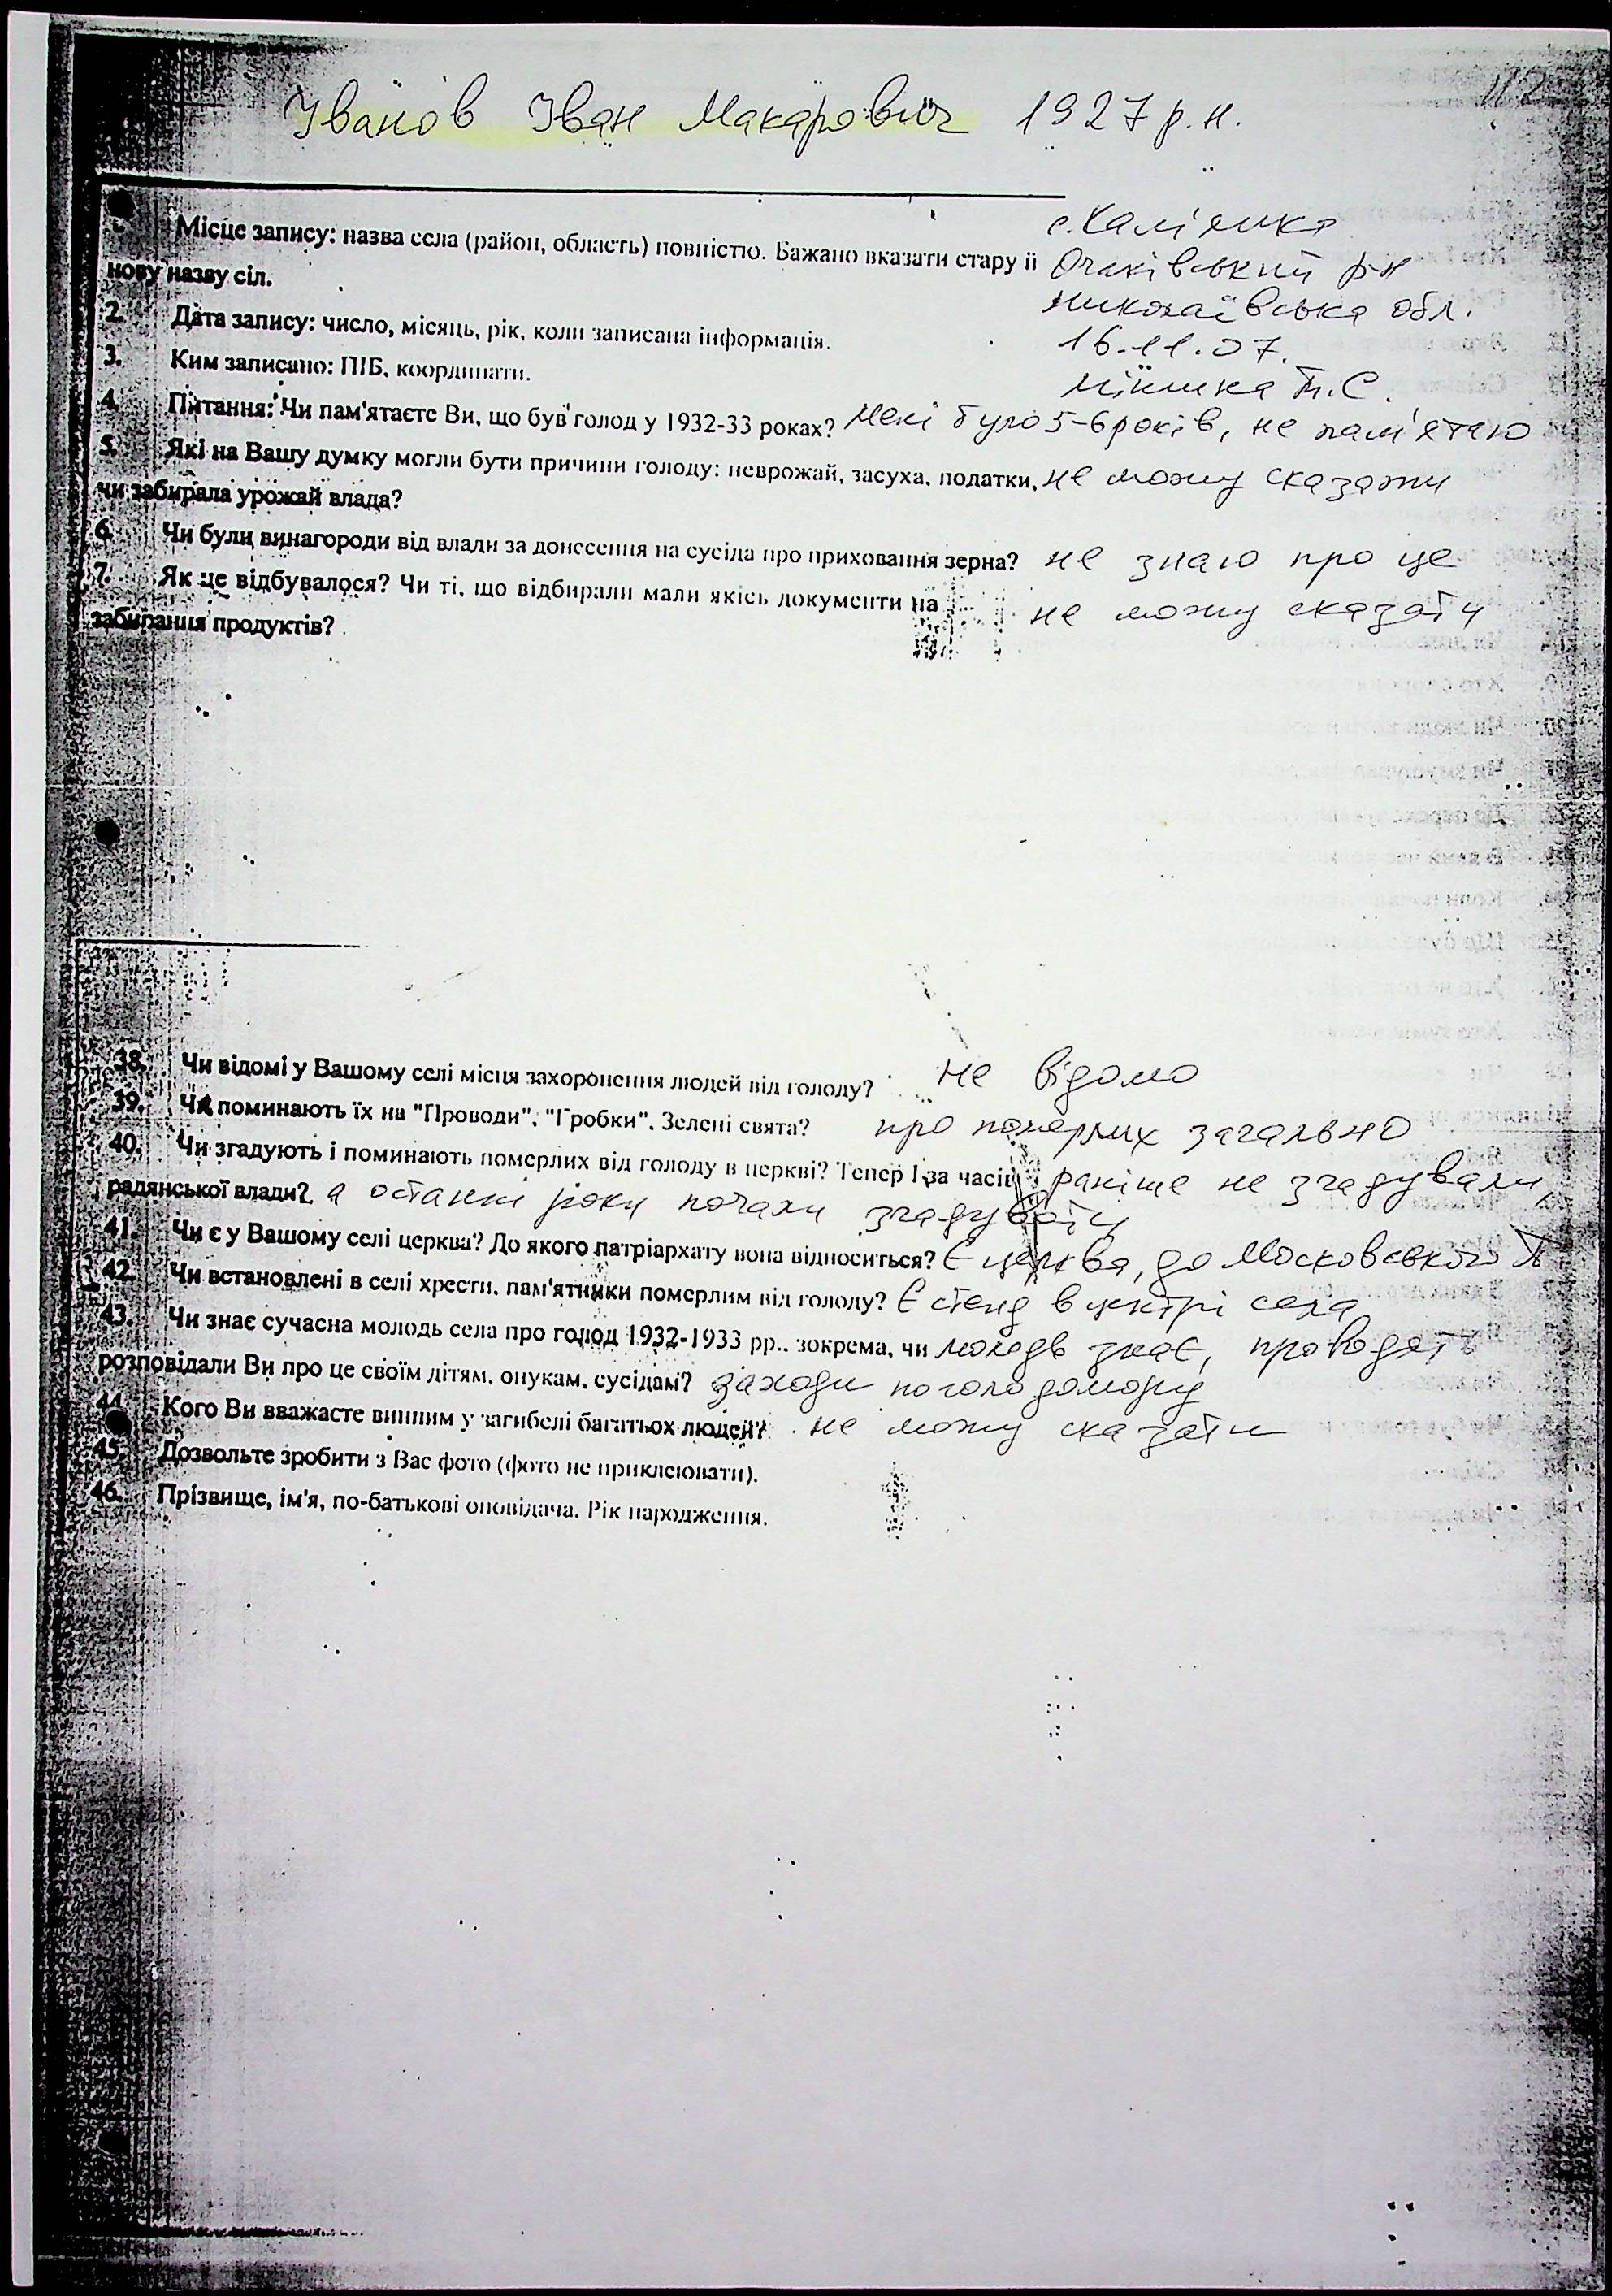 Іванов Іван Макарович 1927 р.н.
с. Кам'янка
Місце запису: назва села (район, область) повністю. Бажано вказати стару й Очаківський р-н
нову назву сіл. Миколаївська обл.
2. Дата запису: число, місяць, рік, коли записана інформація. 16.11.07.
3. Ким записано: ПІБ, координати. П.С.
4. Питання: Чи пам'ятаєте Ви, що був голод у 1932-33 роках? Мені було 5-6 років, не пам'ятаю
5. Які на Вашу думку могли бути причини голоду: неврожай, засуха, податки, не можу сказати
чи забирала урожай влада?
6. Чи були винагороди від влади за донесення на сусіда про приховання зерна? не знаю про це
7. Як це відбувалося? Чи ті, що відбирали мали якісь документи на не можу сказати
забирання продуктів?
38. Чи відомі у Вашому селі місця захоронення людей від голоду? не відомо
39. Чи поминають їх на "Проводи", "Гробки", Зелені свята? про померлих загально
40. Чи згадують і поминають померлих від голоду в церкві? Тепер і за часів раніше не згадували,
радянської влади? а останні роки почали згадувати
41. Чи є у Вашому селі церква? До якого патріархату вона відноситься? Є церква, до Московського П
42. Чи встановлені в селі хрести, пам'ятники померлим від голоду? Є стенд в центрі села
43. Чи знає сучасна молодь села про голод 1932-1933 рр.. зокрема, чи молодь знає, проводять
розповідали Ви про це своїм дітям, онукам, сусідам? заходи по голодомору
44. Кого Ви вважаєте винним у загибелі багатьох людей? не можу сказати
45. Дозвольте зробити з Вас фото (фото не приклеювати).
46. Прізвище, ім'я, по-батькові оповідача. Рік народження.